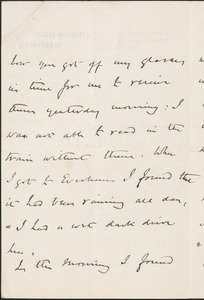 low you got off my glasses
in time for me to receive
them yesterday morning: I
was not able to read in the
train without them. Whe
I got to Evesham I found the
it had been raining all day,
I had a wet dark drive
In the morning I found